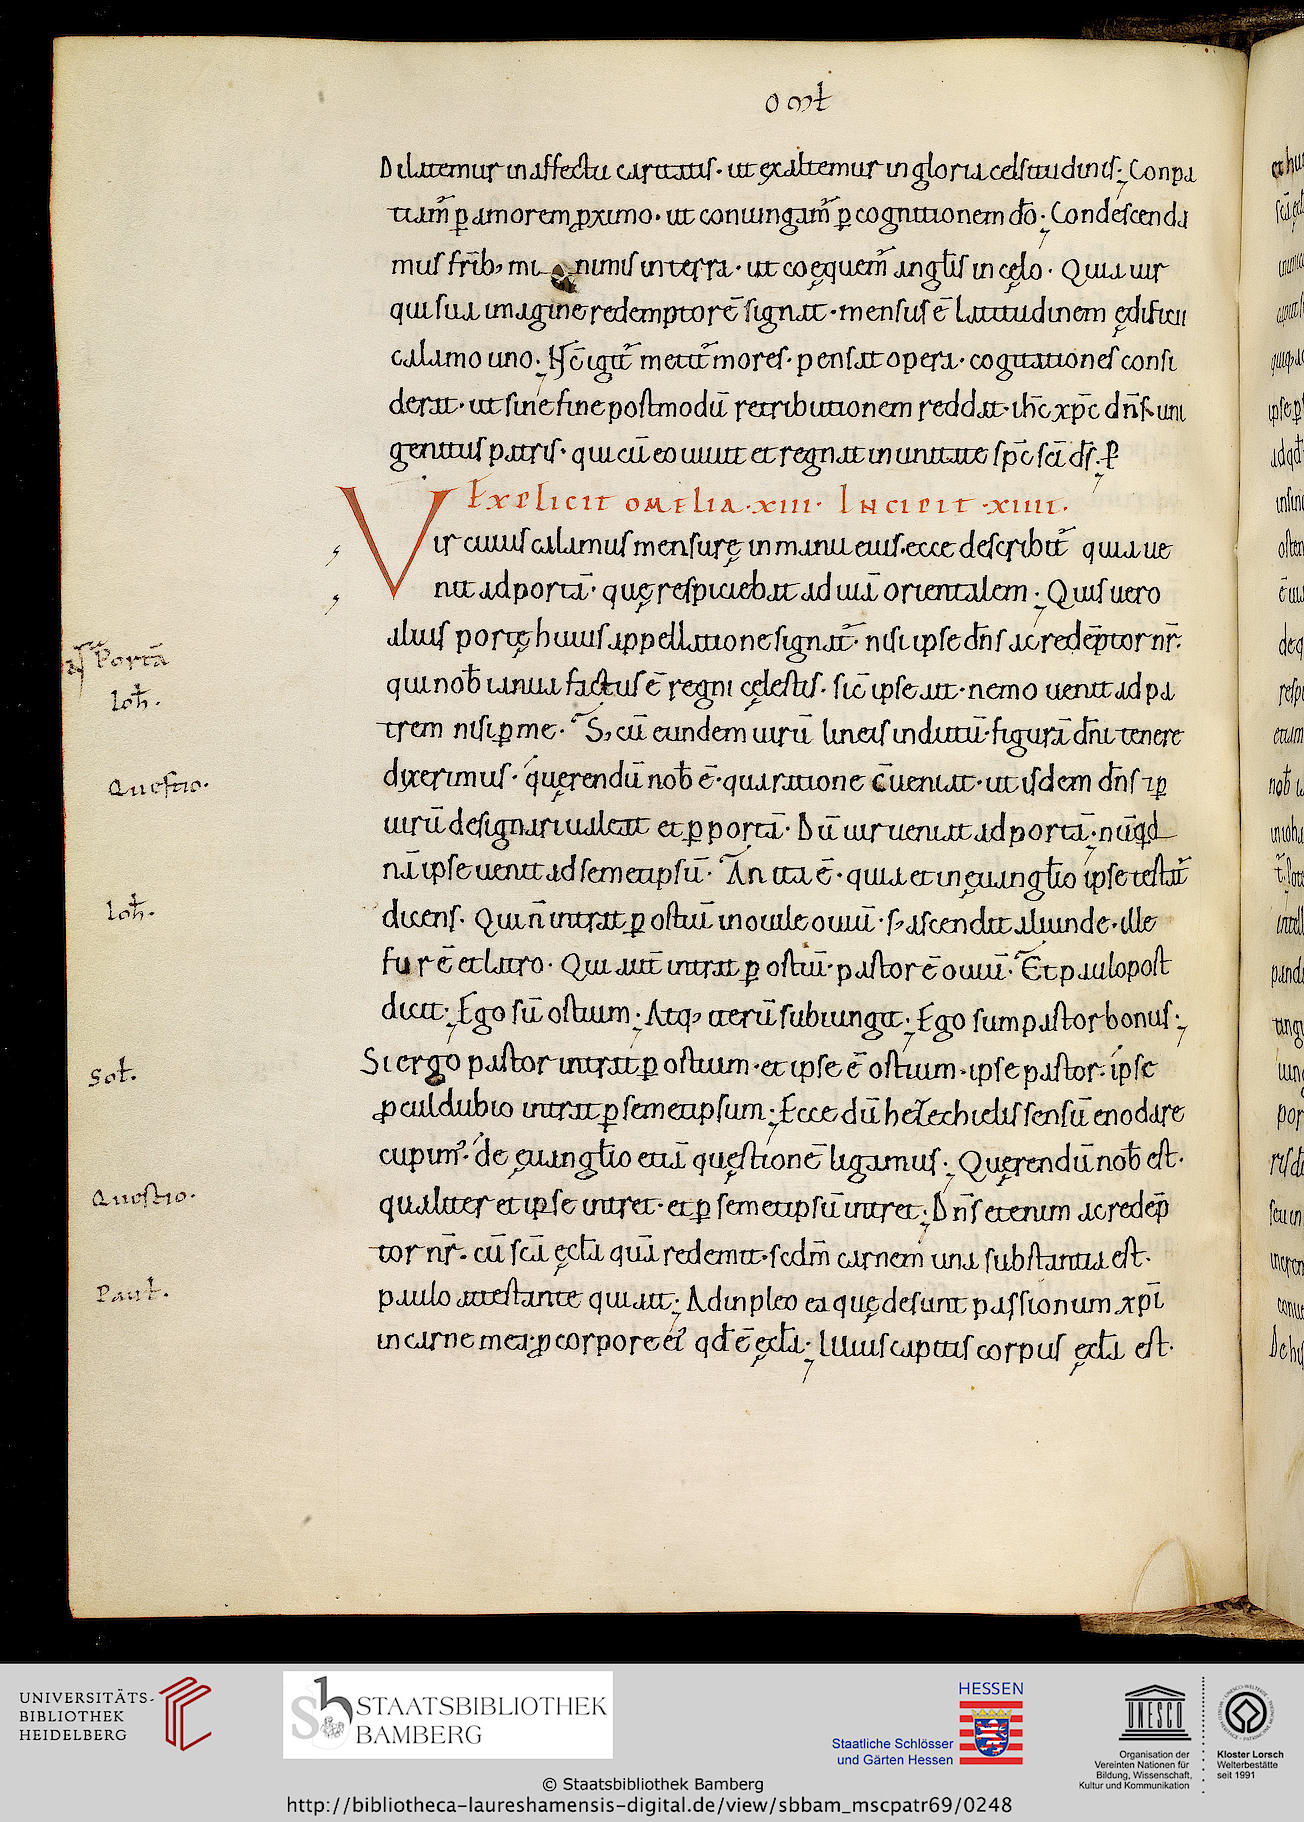 O OMŁ
Dilatemur in affectu caritatis· ut exaltemur in gloria celsitudinis; Conpa
tiam̃ ꝑ amorem ꝓximo· ut coniungam̃ ꝑ cognitionem dō; Condescenda
mus fr̄ib, mi nimis in terra· ut coęquem̃ angłis in cęlo· Quia uir
qui sua imagine redemptorē signat· mensus ē latitudinem ędificii
calamo uno; Hc̄ igit̃ metit̃ mores· pensat opera· cogitationes consi
derat· ut sine fine postmodū retributionem reddat· ihc̄ xp̄c dn̄s uni
genitus patris· qui cū eo uiuit et regnat in unitate sp̄c sc̄i ds̄; ꝑ
Explicit omelia·xiii· Incipit ·xiiii·
Vir cuius calamus mensurę in manu eius· ecce describit̃ quia ue
nit ad portā· quę respiciebat ad uiā orientalem; Quis uero
alius portę huius appellatione signat̃· nisi ipse dn̄s ac redēptor nr̄·
qui nob̄ ianua factus ē regni cęlestis· sic̄ ipse ait· nemo uenit ad pa
trem nisi ꝑ me· S, cū eundem uirū lineis indutū· figurā dn̄i tenere
dixerimus· quęrendū nob̄ ē· qua ratione c̄ueniat· ut isdem dn̄s ⁊ ꝑ
uirū designari ualeat et ꝑ portā· Dū uir ueniat ad portā; nūqd
nā ipse uenit ad semetipsū· An ita ē· quia et in ęuangłio ipse testat̃
dicens· Qui n̄ intrat ꝑ ostiū in ouile ouiū· s, ascendit aliunde· ille
fur ē et latro· Qui aut̄ intrat ꝑ ostiū· pastor ē ouiū· Et paulo post
dicit; Ego sū ostium; Atq, iterū subiungit; Ego sum pastor bonus;
Si ergo pastor intrat ꝑ ostium· et ipse ē ostium· ipse pastor· ipse
ꝓculdubio intrat ꝑ semetipsum; Ecce dū hezechielis sensū enodare
cupim᾽· de ęuangłio etiā quęstionē ligamus; Quęrendū nob̄ est·
qualiter et ipse intret· et ꝑ semetipsū intret; Dn̄s etenim ac redēp
tor nr̄· cū sc̄a ęcłła quā redemit· scdm̄ carnem una substantia est·
paulo attestante qui ait; Adinpleo ea quę desunt passionum xp̄i
in carne mea ꝓ corpore ei᾽ qd̄ ē ęcłła; huius capitis corpus ęcłła est·
Portā
Ioh̄·
Questio·
Ioh̄·
Soł·
Questio·
Pauł·
UNIVERSITÄTS-
BIBLIOTHEK
HEIDELBERG
STAATSBIBLIOTHEK
BAMBERG
HESSEN
Staatliche Schlösser
und Gärten Hessen
UNESCO
Organisation der
Vereinten Nationen für
Bildung, Wissenschaft,
Kultur und Kommunikation
Kloster Lorsch
Welterbestätte
seit 1991
© Staatsbibliothek Bamberg
http://bibliotheca-laureshamensis-digital.de/view/sbbam_mscpatr69/0248